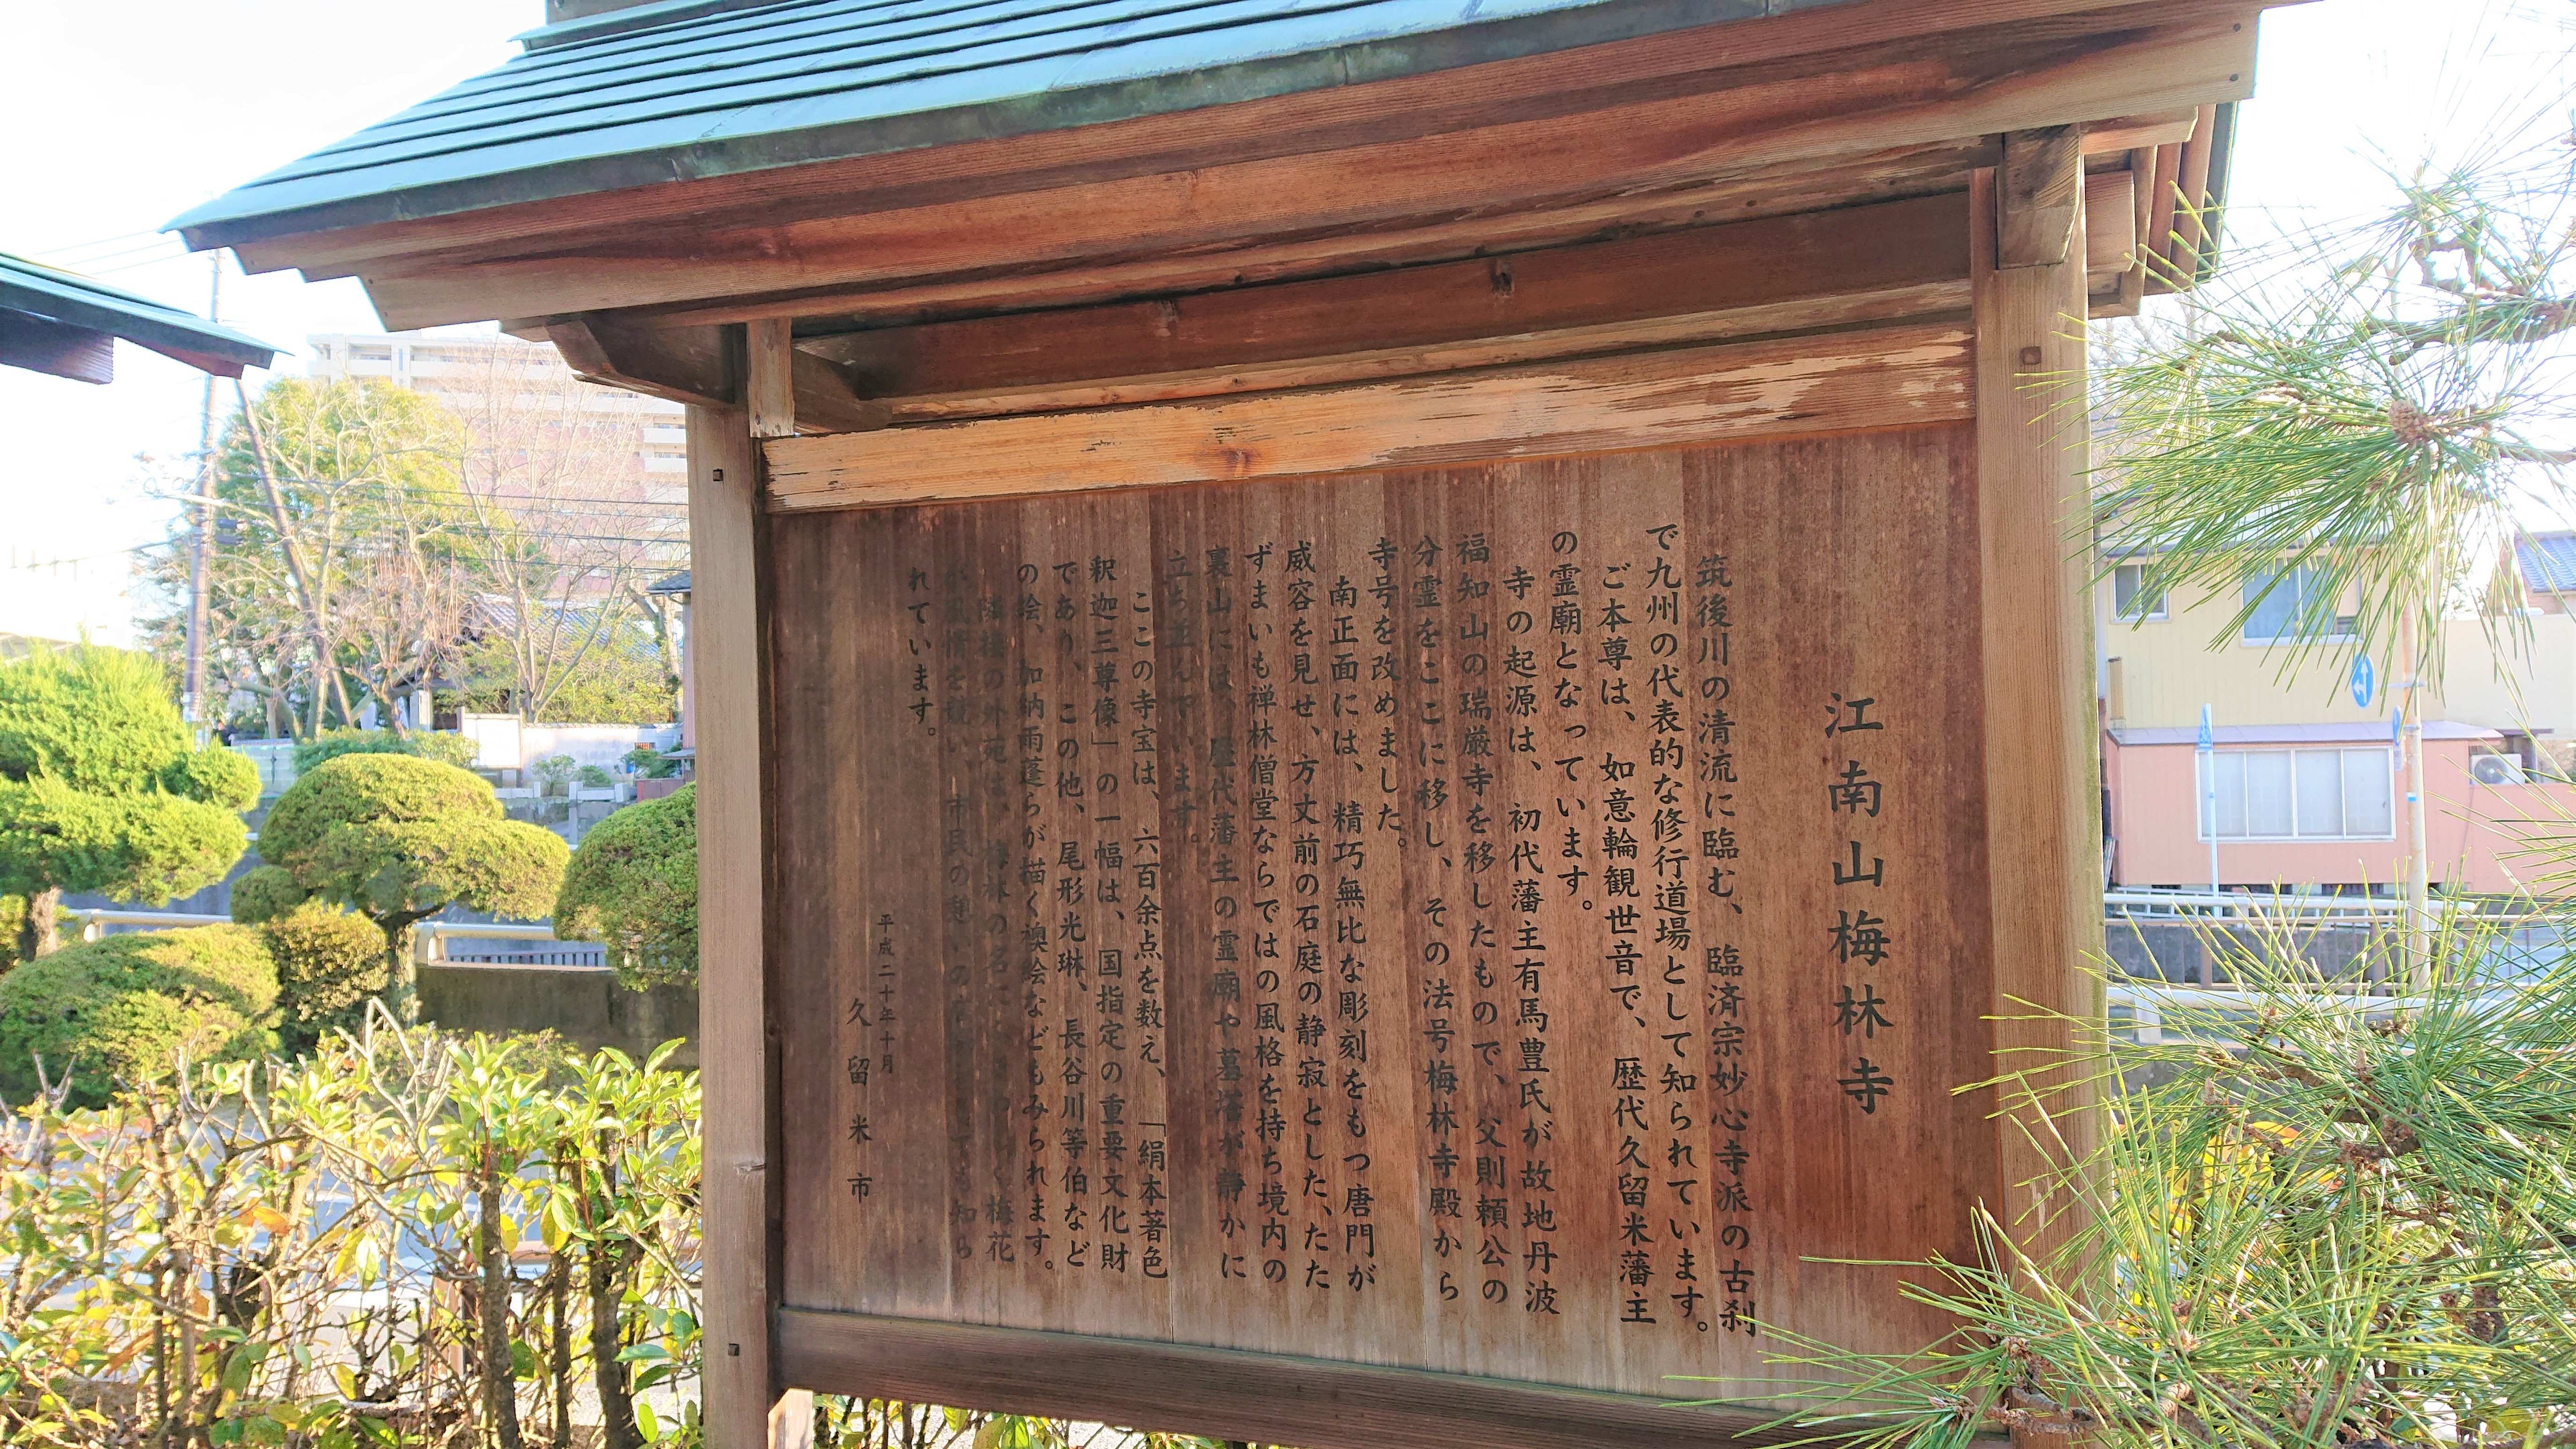 江南山梅林寺
筑後川の清流に臨む、臨済宗妙心寺派の古刹
で九州の代表的な修行道場として知られています。
ご本尊は、如意輪観世音で、歴代久留米藩主
の霊廟となっています。
寺の起源は、初代藩主有馬豊氏が故地丹波
福知山の瑞厳寺を移したもので、父則頼公の
分霊をここに移し、その法号梅林寺殿から
寺号を改めました。
南正面には、精巧無比な彫刻をもつ唐門が
威容を見せ、方丈前の石庭の静寂とした、たた
ずまいも禅林僧堂ならではの風格を持ち境内の
裏山には、歴代藩主の霊廟や墓塔が静かに
立ち並んでいます。
ここの寺宝は、六百余点を数え、「絹本著色
釈迦三尊像」の一幅は、国指定の重要文化財
であり、この他、尾形光琳、長谷川等伯など
の絵、加納雨蓬らが描く襖絵などもみられます。
隣接の外苑は、梅林の名に く梅花
風情を競い、市民の憩 の ても知ら
れています。
平成二十年十月
久留米市